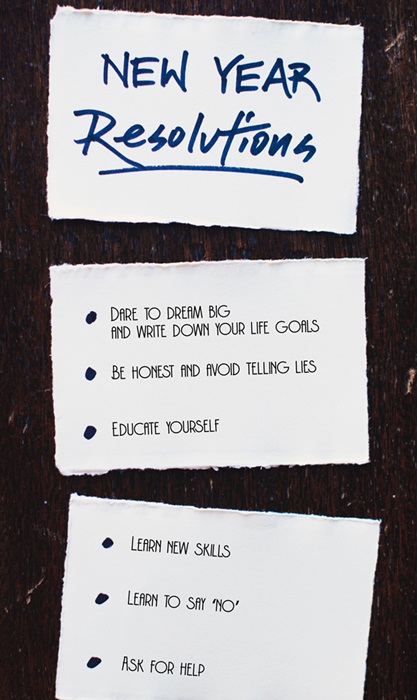 NEW YEAR
Resolutions
DARE TO DREAM BIG
AND WRITE DOWN YOUR LIFE GOALS
BE HONEST AND AVOID TELLING LIES
EDUCATE YOURSELF
LEARN NEW SKILLS
LEARN TO SAY 'NO'
ASK FOR HELP